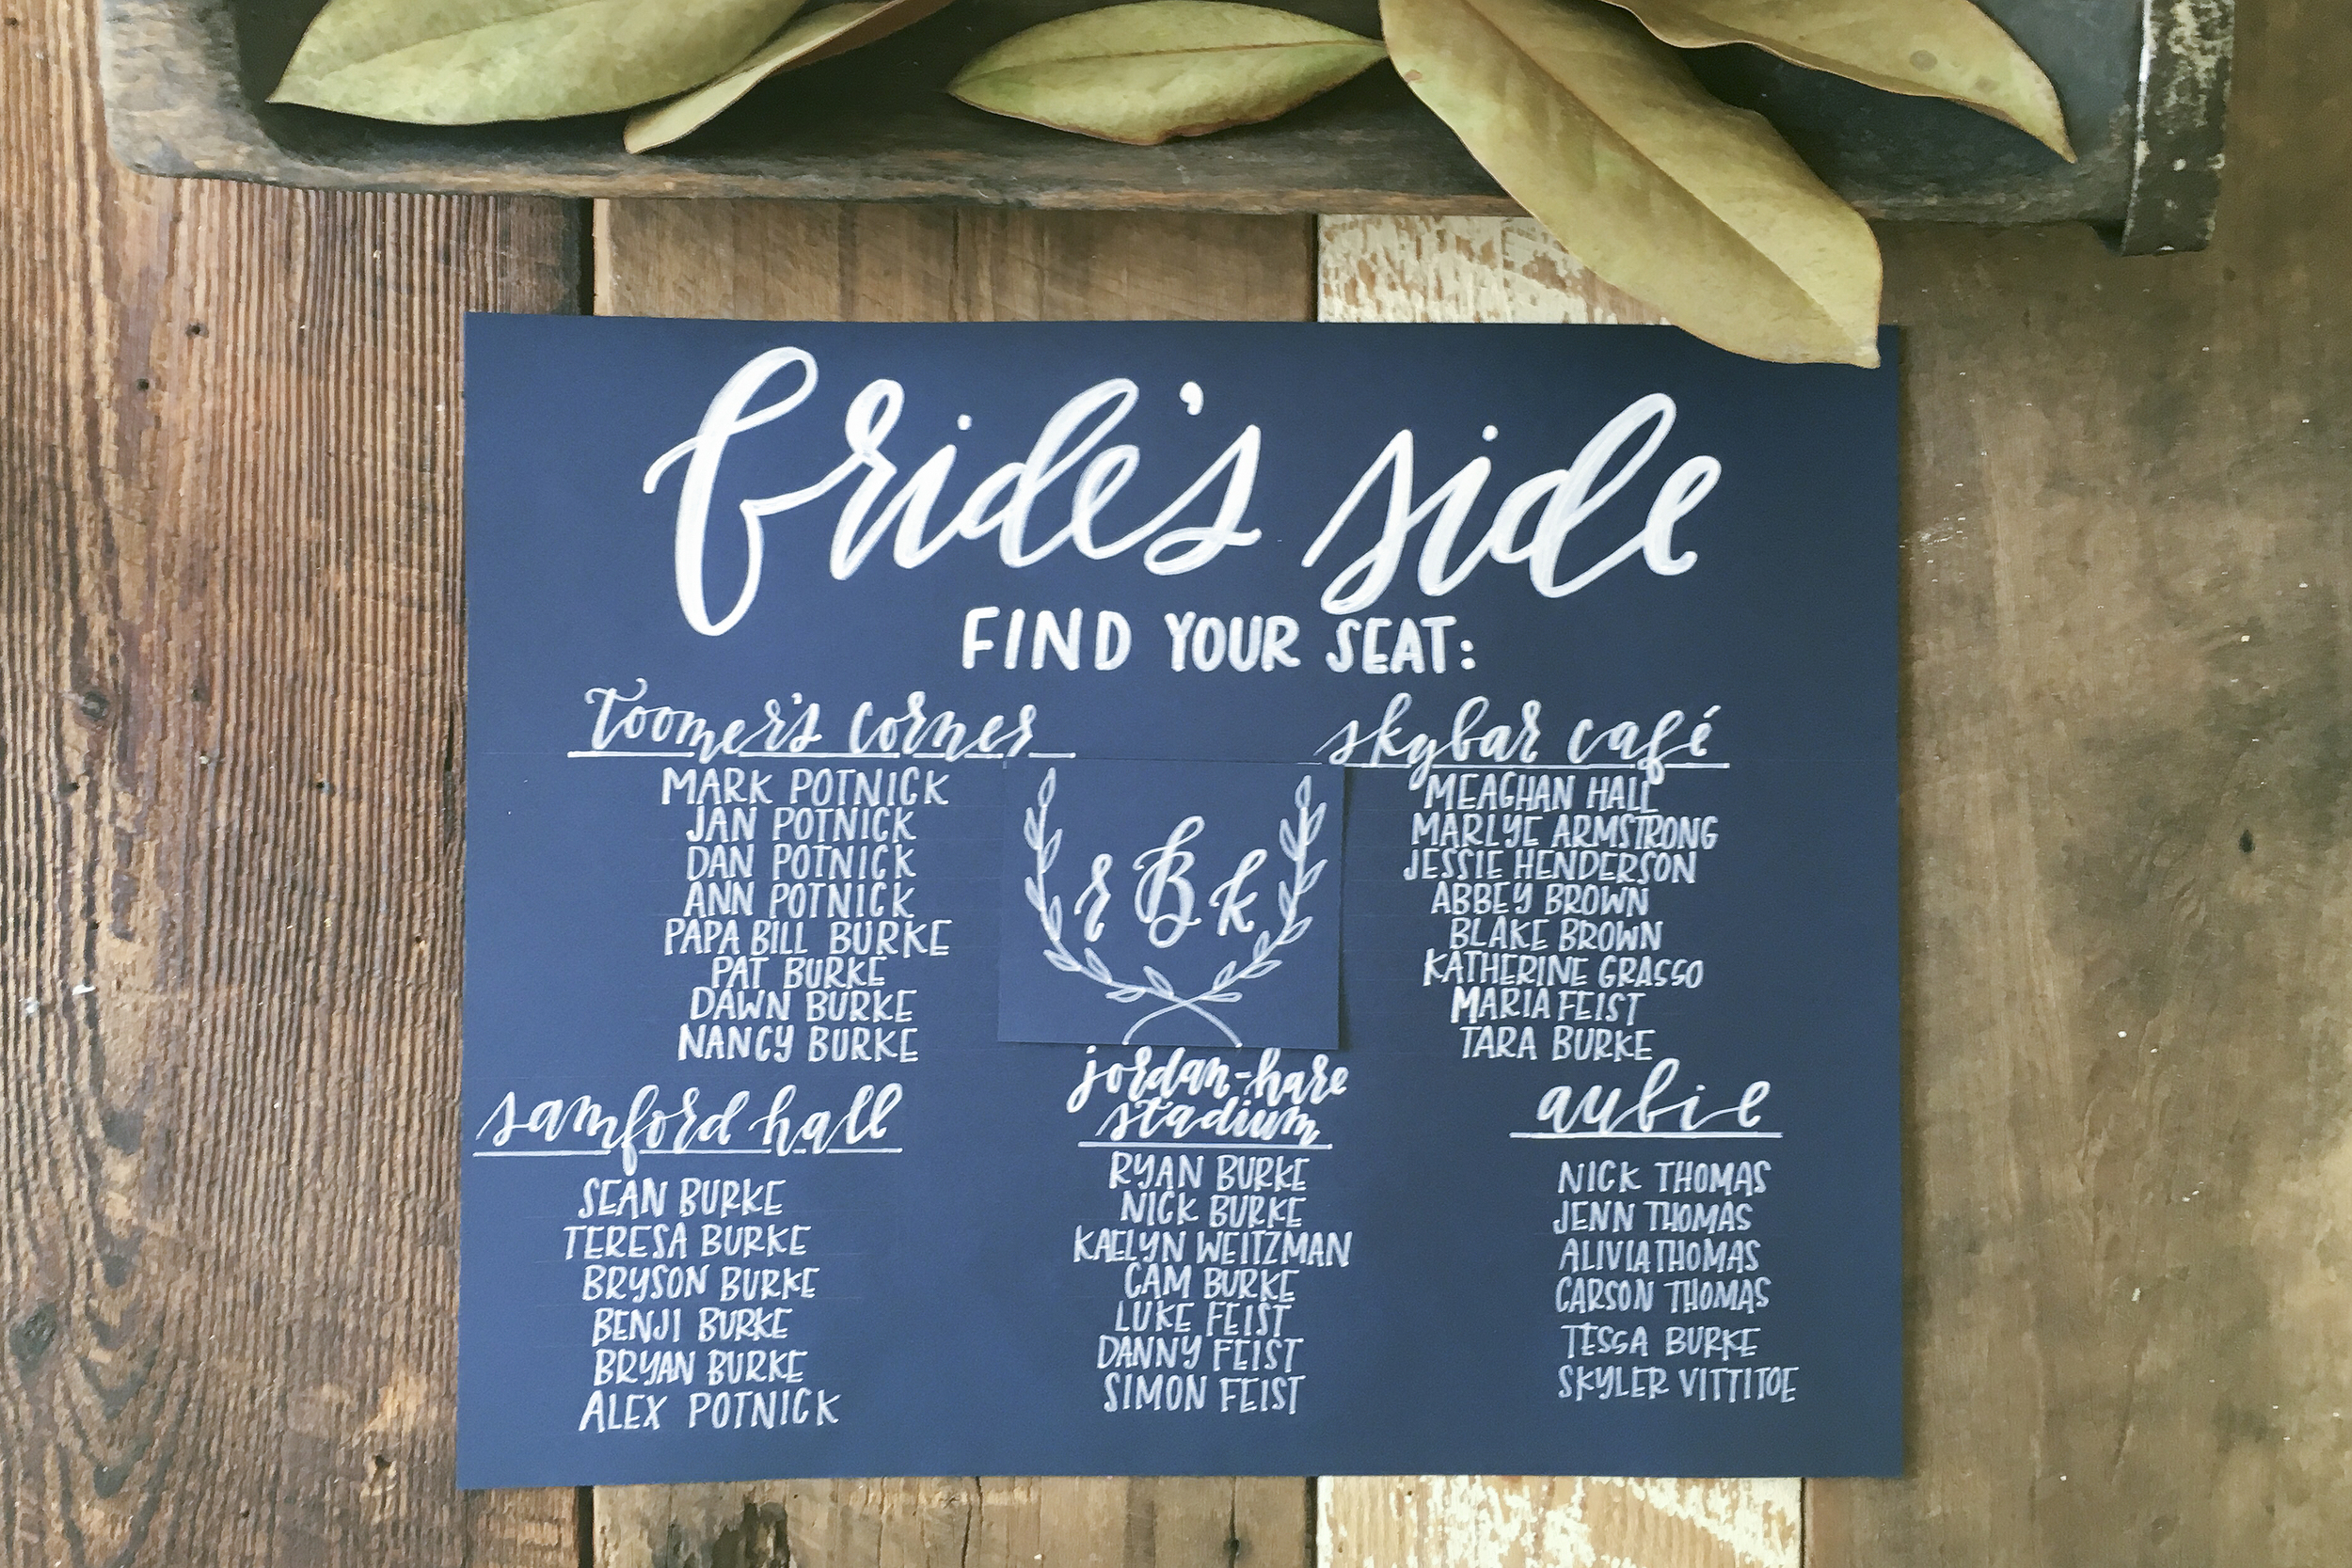 bride's side
FIND YOUR SEAT:
toomer's corner
MARK POTNICK
JAN POTNICK
DAN POTNICK
ANN POTNICK
PAPA BILL BURKE
PAT BURKE
DAWN BURKE
NANCY BURKE
skybar café
MEAGHAN HALL
MARLYE ARMSTRONG
JESSIE HENDERSON
ABBEY BROWN
BLAKE BROWN
KATHERINE GRASSO
MARIA FEIST
TARA BURKE
r B k
samford hall
SEAN BURKE
TERESA BURKE
BRYSON BURKE
BENJI BURKE
BRYAN BURKE
ALEX POTNICK
jordan-hare
stadium
RYAN BURKE
NICK BURKE
KAELYN WEITZMAN
CAM BURKE
LUKE FEIST
DANNY FEIST
SIMON FEIST
aubie
NICK THOMAS
JENN THOMAS
ALIVIA THOMAS
CARSON THOMAS
TESSA BURKE
SKYLER VITTITOE